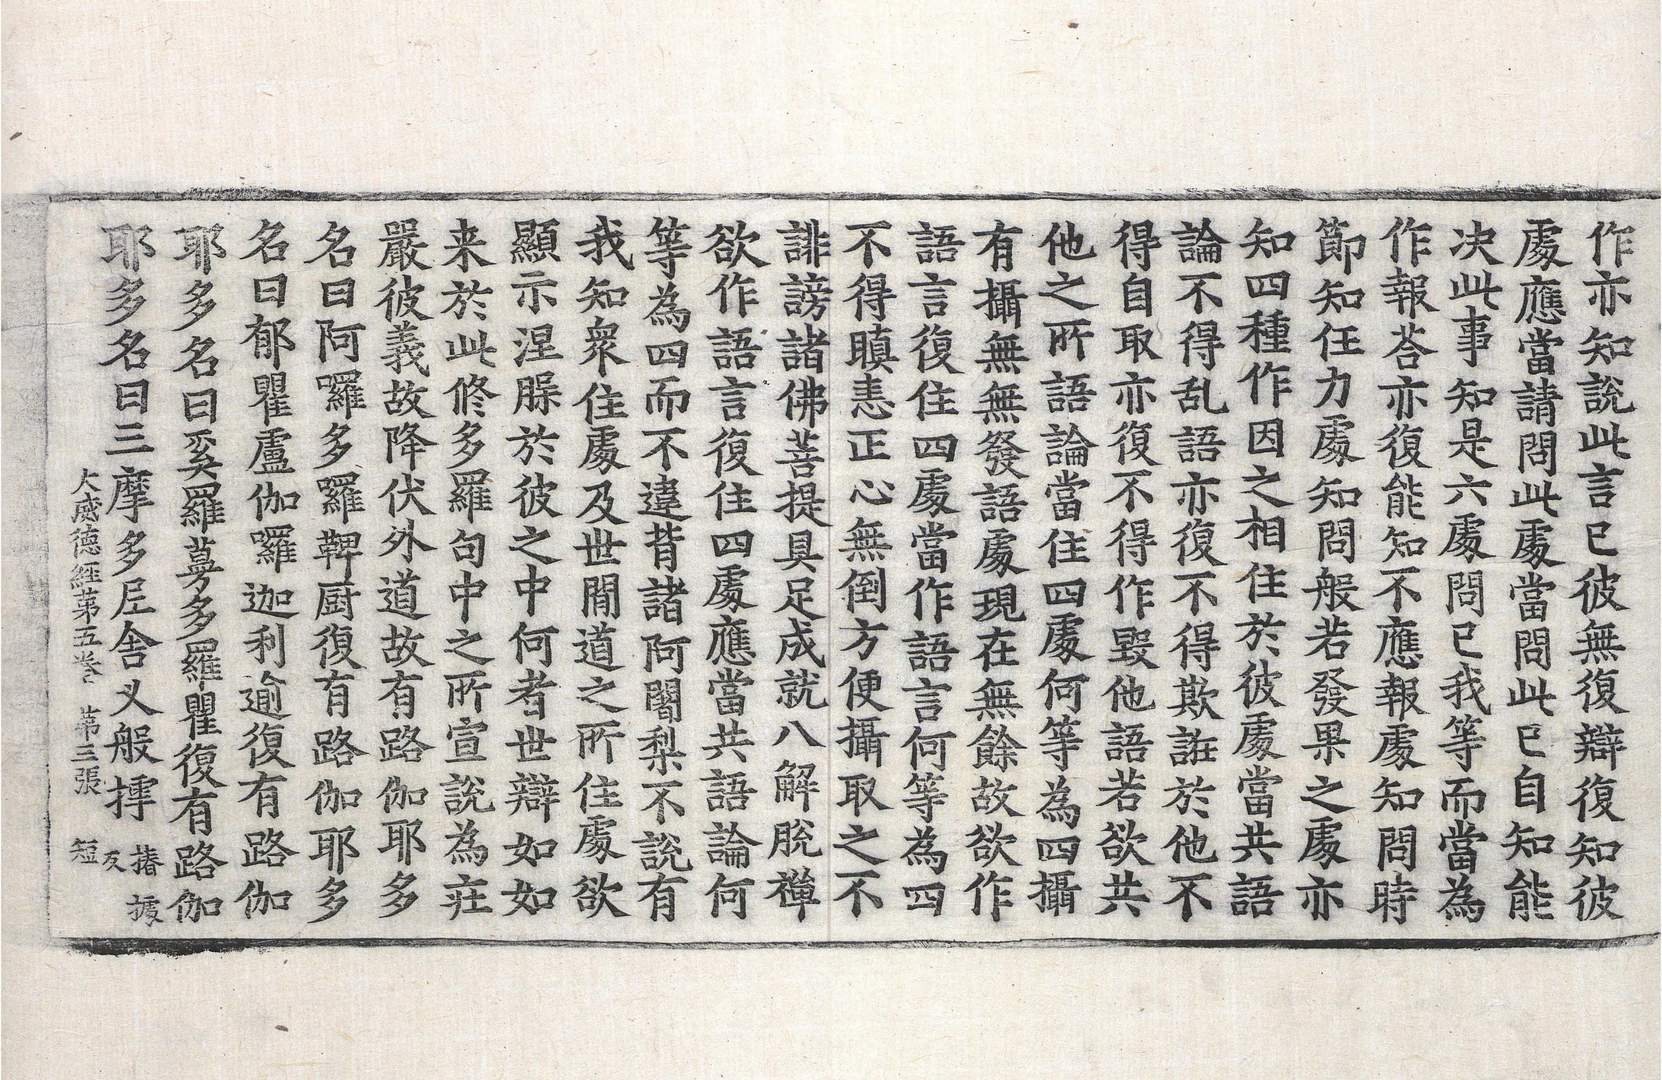 作亦知說此言已彼無復辯復知彼
處應當請問此處當問此已自知能
決此事知是六處問已我等而當為
作報荅亦復能知不應報處知問時
節知任力處知問般若發果之處亦
知四種作因之相住於彼處當共語
論不得乱語亦復不得欺誑於他不
得自取亦復不得作毀他語若欲共
他之所語論當住四處何等為四攝
有攝無無發語處現在無餘故欲作
語言復住四處當作語言何等為四
不得瞋恚正心無倒方便攝取之不
誹謗諸佛菩提具足成就八解脫禪
欲作語言復住四處應當共語論何
等為四而不違背諸阿闍梨不說有
我知衆住處及世間道之所住處欲
顯示涅臊於彼之中何者世辯如如
来於此修多羅句中之所宣說為莊
嚴彼義故降伏外道故有路伽耶多
名曰阿囉多羅鞞厨復有路伽耶多
名曰郁瞿盧伽囉迦利逾復有路伽
耶多名曰奚羅蕚多羅瞿復有路伽
耶多名曰三摩多𡰱舍义般㨄
大威德經第五卷 第三張 短